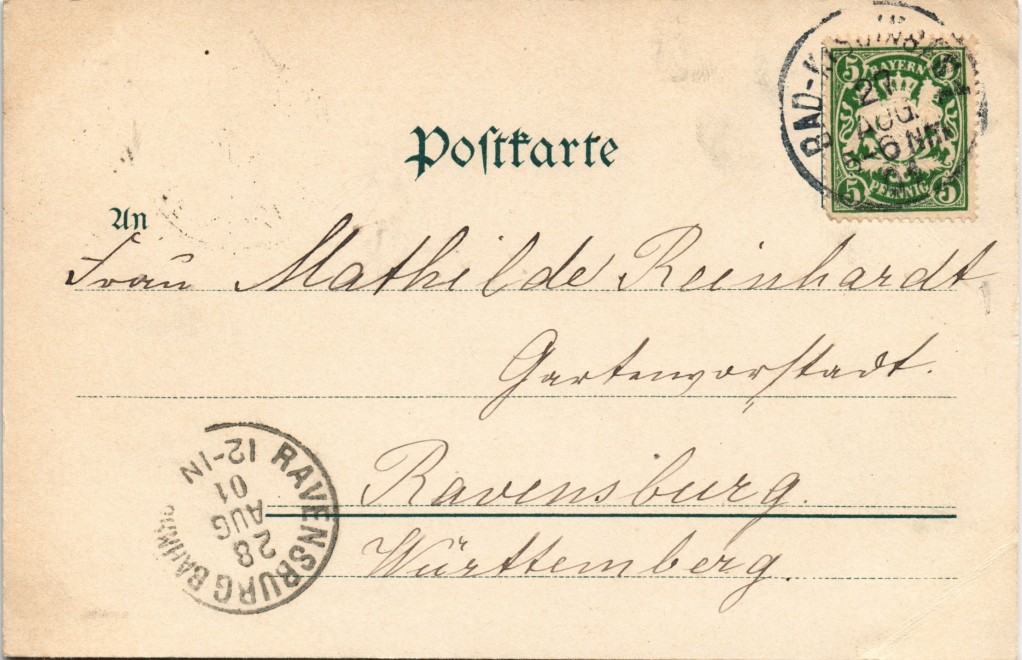 Postkarte
BAD-KISSINGEN
27
AUG.
5-6 NM
01
5 BAYERN 5
5 PFENNIG 5
An
Frau Mathilde Reinhardt
Gartenvorstadt.
Ravensburg.
Württemberg.
RAVENSBURG BAHNHOF
28
AUG
01
12-1N